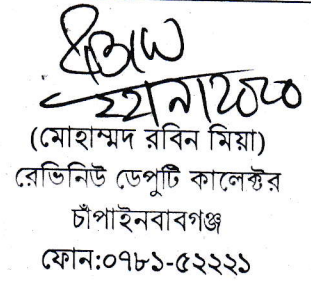 (মোহাম্মদ রবিন মিয়া)
রেভিনিউ ডেপুটি কালেক্টর
চাঁপাইনবাবগঞ্জ
ফোন:০৭৮১-৫২২২১